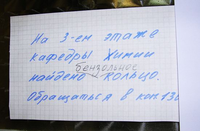 На 3-ем этаже
кафедры Химии
бензольное
найдено кольцо.
Обращаться в ком. 13